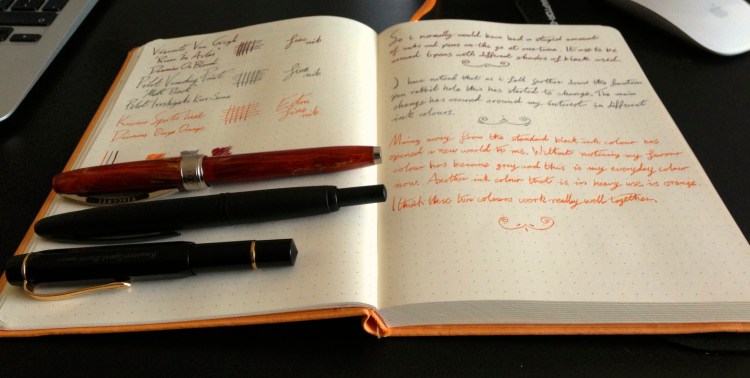 Visconti Van Gogh
Room in Arles
Fine
nib
Diamine Ox Blood
Pilot Vanishing Point
Matt Black
Fine
nib
Pilot Iroshizuku Kiri-Same
Kaweco Sports
Extra
fine
nib
Diamine
Orange
So I normally would have had a stupid amount
of inks and pens on the go at one time. It use to be
around 6 pens with different shades of black used.
I have noticed that as I fall further down the fountain
pen rabbit hole this has started to change. The main
change has around my interest in different
ink colours.
Moving away from the standard black ink colour has
opened a new world to me. Without noticing my favour
colour has become grey and this is my everyday colour
now. Another ink colour that is in heavy use is orange.
I think these two colours work really well together.
VISCONTI